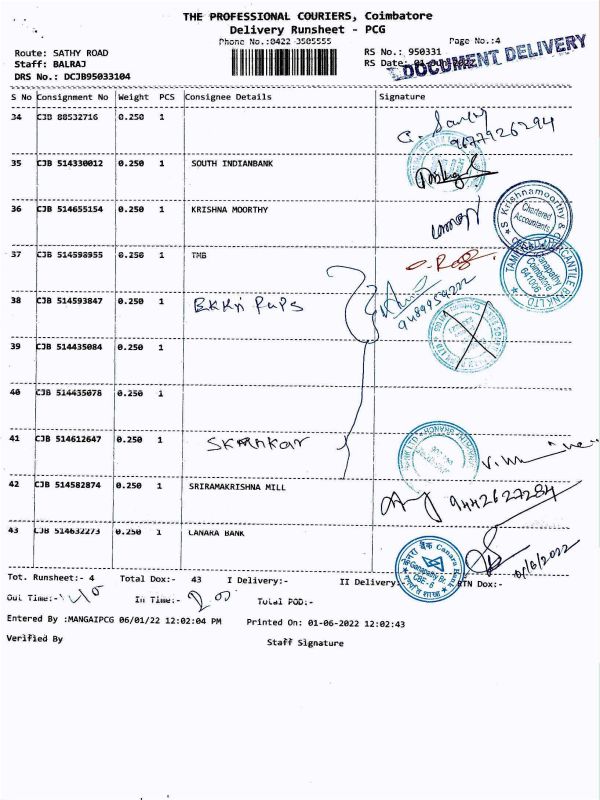 THE PROFESSIONAL COURIERS, Coimbatore
Delivery Runsheet - PCG
Phone No.:0422 3505555
Page No.:4
Route: SATHY ROAD
RS No.: 950331
Staff: BALRAJ
RS Date: 01-Jun-2022
DOCUMENT DELIVERY
DRS No.: DCJB95033104
S No Consignment No Weight PCS Consignee Details Signature
34 CJB 88532716 0.250 1
9677926294
35 CJB 514330012 0.250 1 SOUTH INDIANBANK
36 CJB 514655154 0.250 1 KRISHNA MOORTHY
S Krishnamoorthy & Co
Chartered Accountants
37 CJB 514598955 0.250 1 TMB
TAMILNAD MERCANTILE BANK LTD
Ganapathy
Coimbatore
641006
38 CJB 514593847 0.250 1
39 CJB 514435084 0.250 1
40 CJB 514435078 0.250 1
41 CJB 514612647 0.250 1
42 CJB 514582874 0.250 1 SRIRAMAKRISHNA MILL
9442627284
43 CJB 514632273 0.250 1 CANARA BANK
केनरा बैंक Canara Bank
Ganapathy Br.
CBE-6
01/6/2022
Tot. Runsheet:- 4 Total Dox:- 43 I Delivery:- II Delivery:- RTN Dox:-
Out Time:- In Time:- Total POD:-
Entered By :MANGAIPCG 06/01/22 12:02:04 PM Printed On: 01-06-2022 12:02:43
Verified By Staff Signature